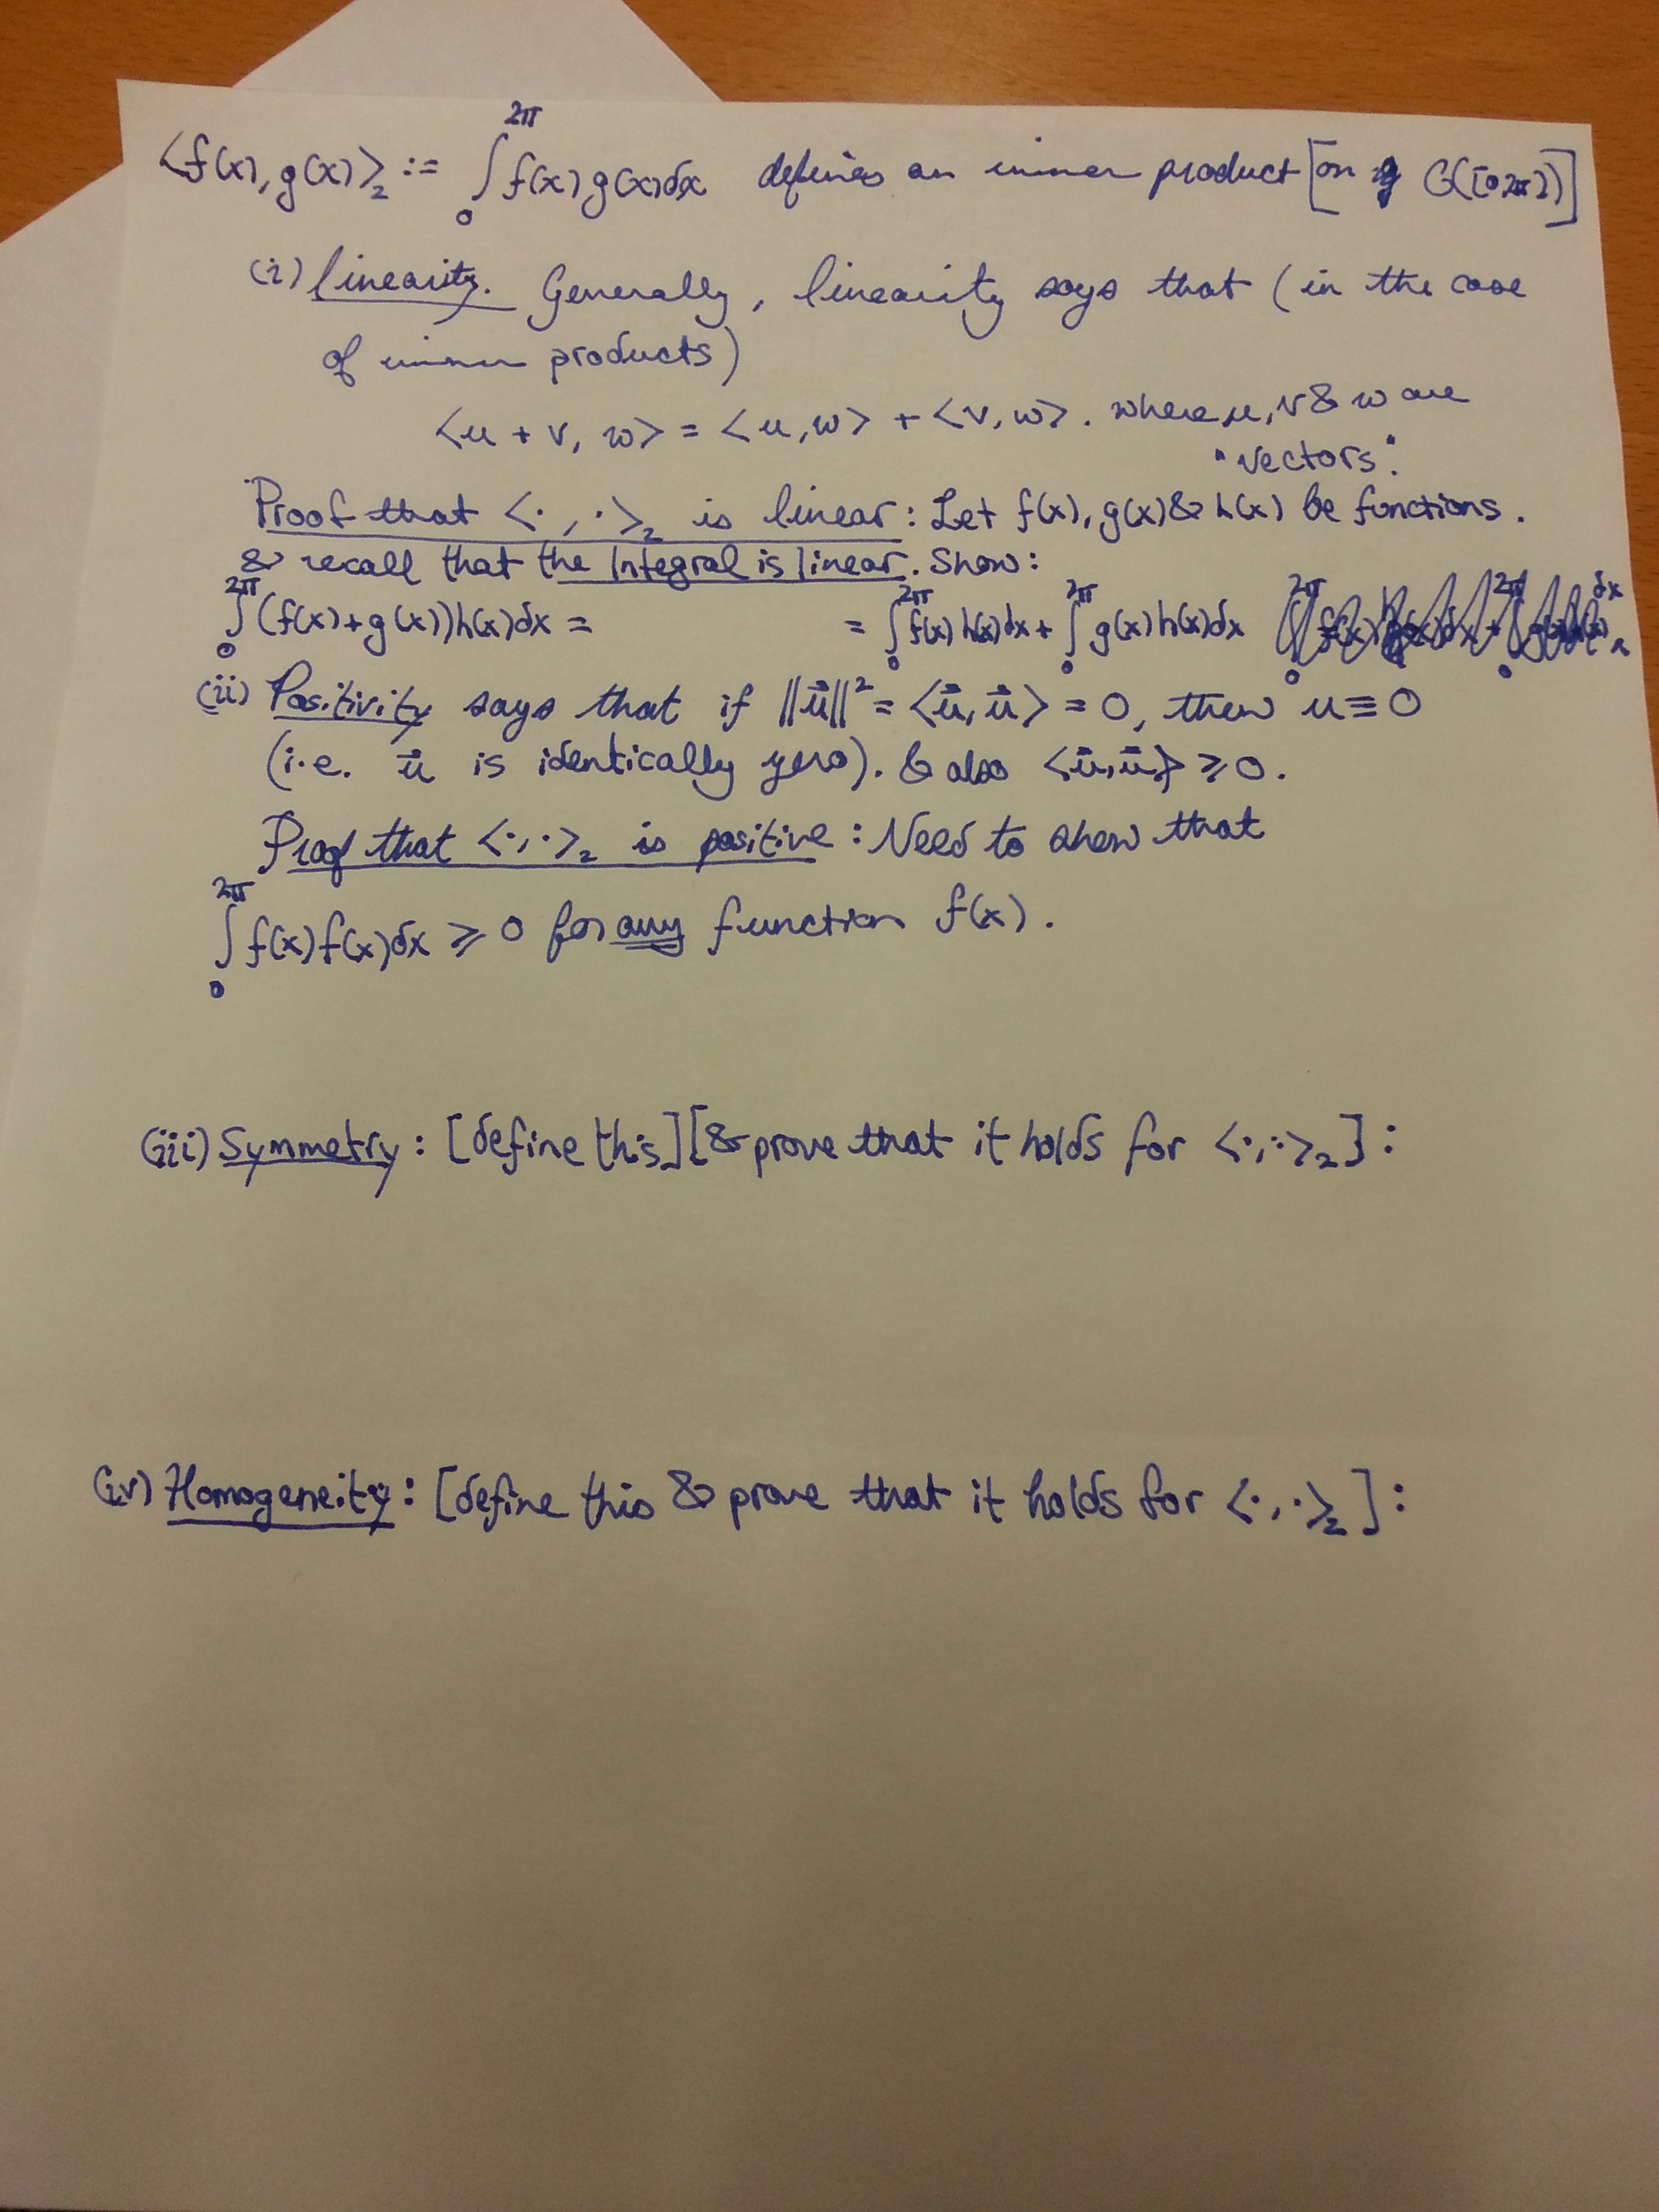 <f(x), g(x)>₂ := ∫₀^2π f(x)g(x)dx defines an inner product [on C([0 2π])]
(i) linearity. Generally, linearity says that (in the case
of inner products)
<u + v, w> = <u,w> + <v,w>. where u, v & w are
"vectors".
Proof that <·,·>₂ is linear: Let f(x), g(x) & h(x) be functions.
& recall that the Integral is linear. Show:
∫₀^2π (f(x)+g(x))h(x)dx = = ∫₀^2π f(x)h(x)dx + ∫₀^2π g(x)h(x)dx
(ii) Positivity says that if ||u⃗||² = <u⃗,u⃗> = 0, then u≡0
(i.e. u⃗ is identically zero). & also <u⃗,u⃗> ≥ 0.
Proof that <·,·>₂ is positive: Need to show that
∫₀^2π f(x)f(x)dx ≥ 0 for any function f(x).
(iii) Symmetry: [define this][& prove that it holds for <·,·>₂]:
(iv) Homogeneity: [define this & prove that it holds for <·,·>₂]: